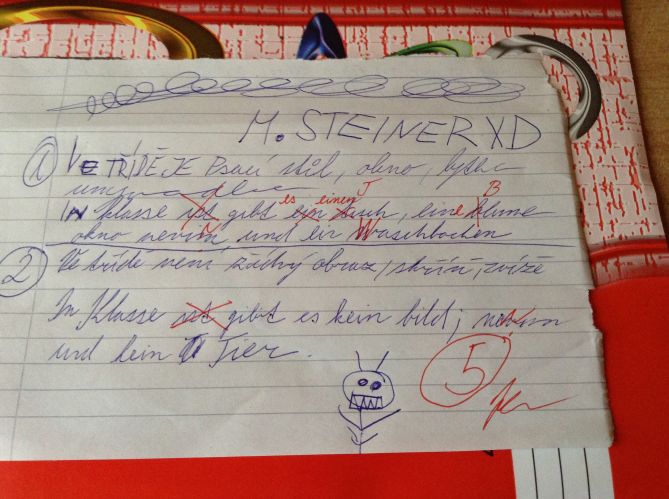 M. STEINER XD
1 VE TŘÍDĚ JE Psací stůl, okno, kytka
umyvadlo
es einen T B
IN klasse ist gibt ein tisch, eine blume
okno nevím und ein Waschbecken
2 Ve třídě není žádný obraz, skříň, zvíře
In Klasse ist gibt es kein bild, nevím
und kein Tier.
5